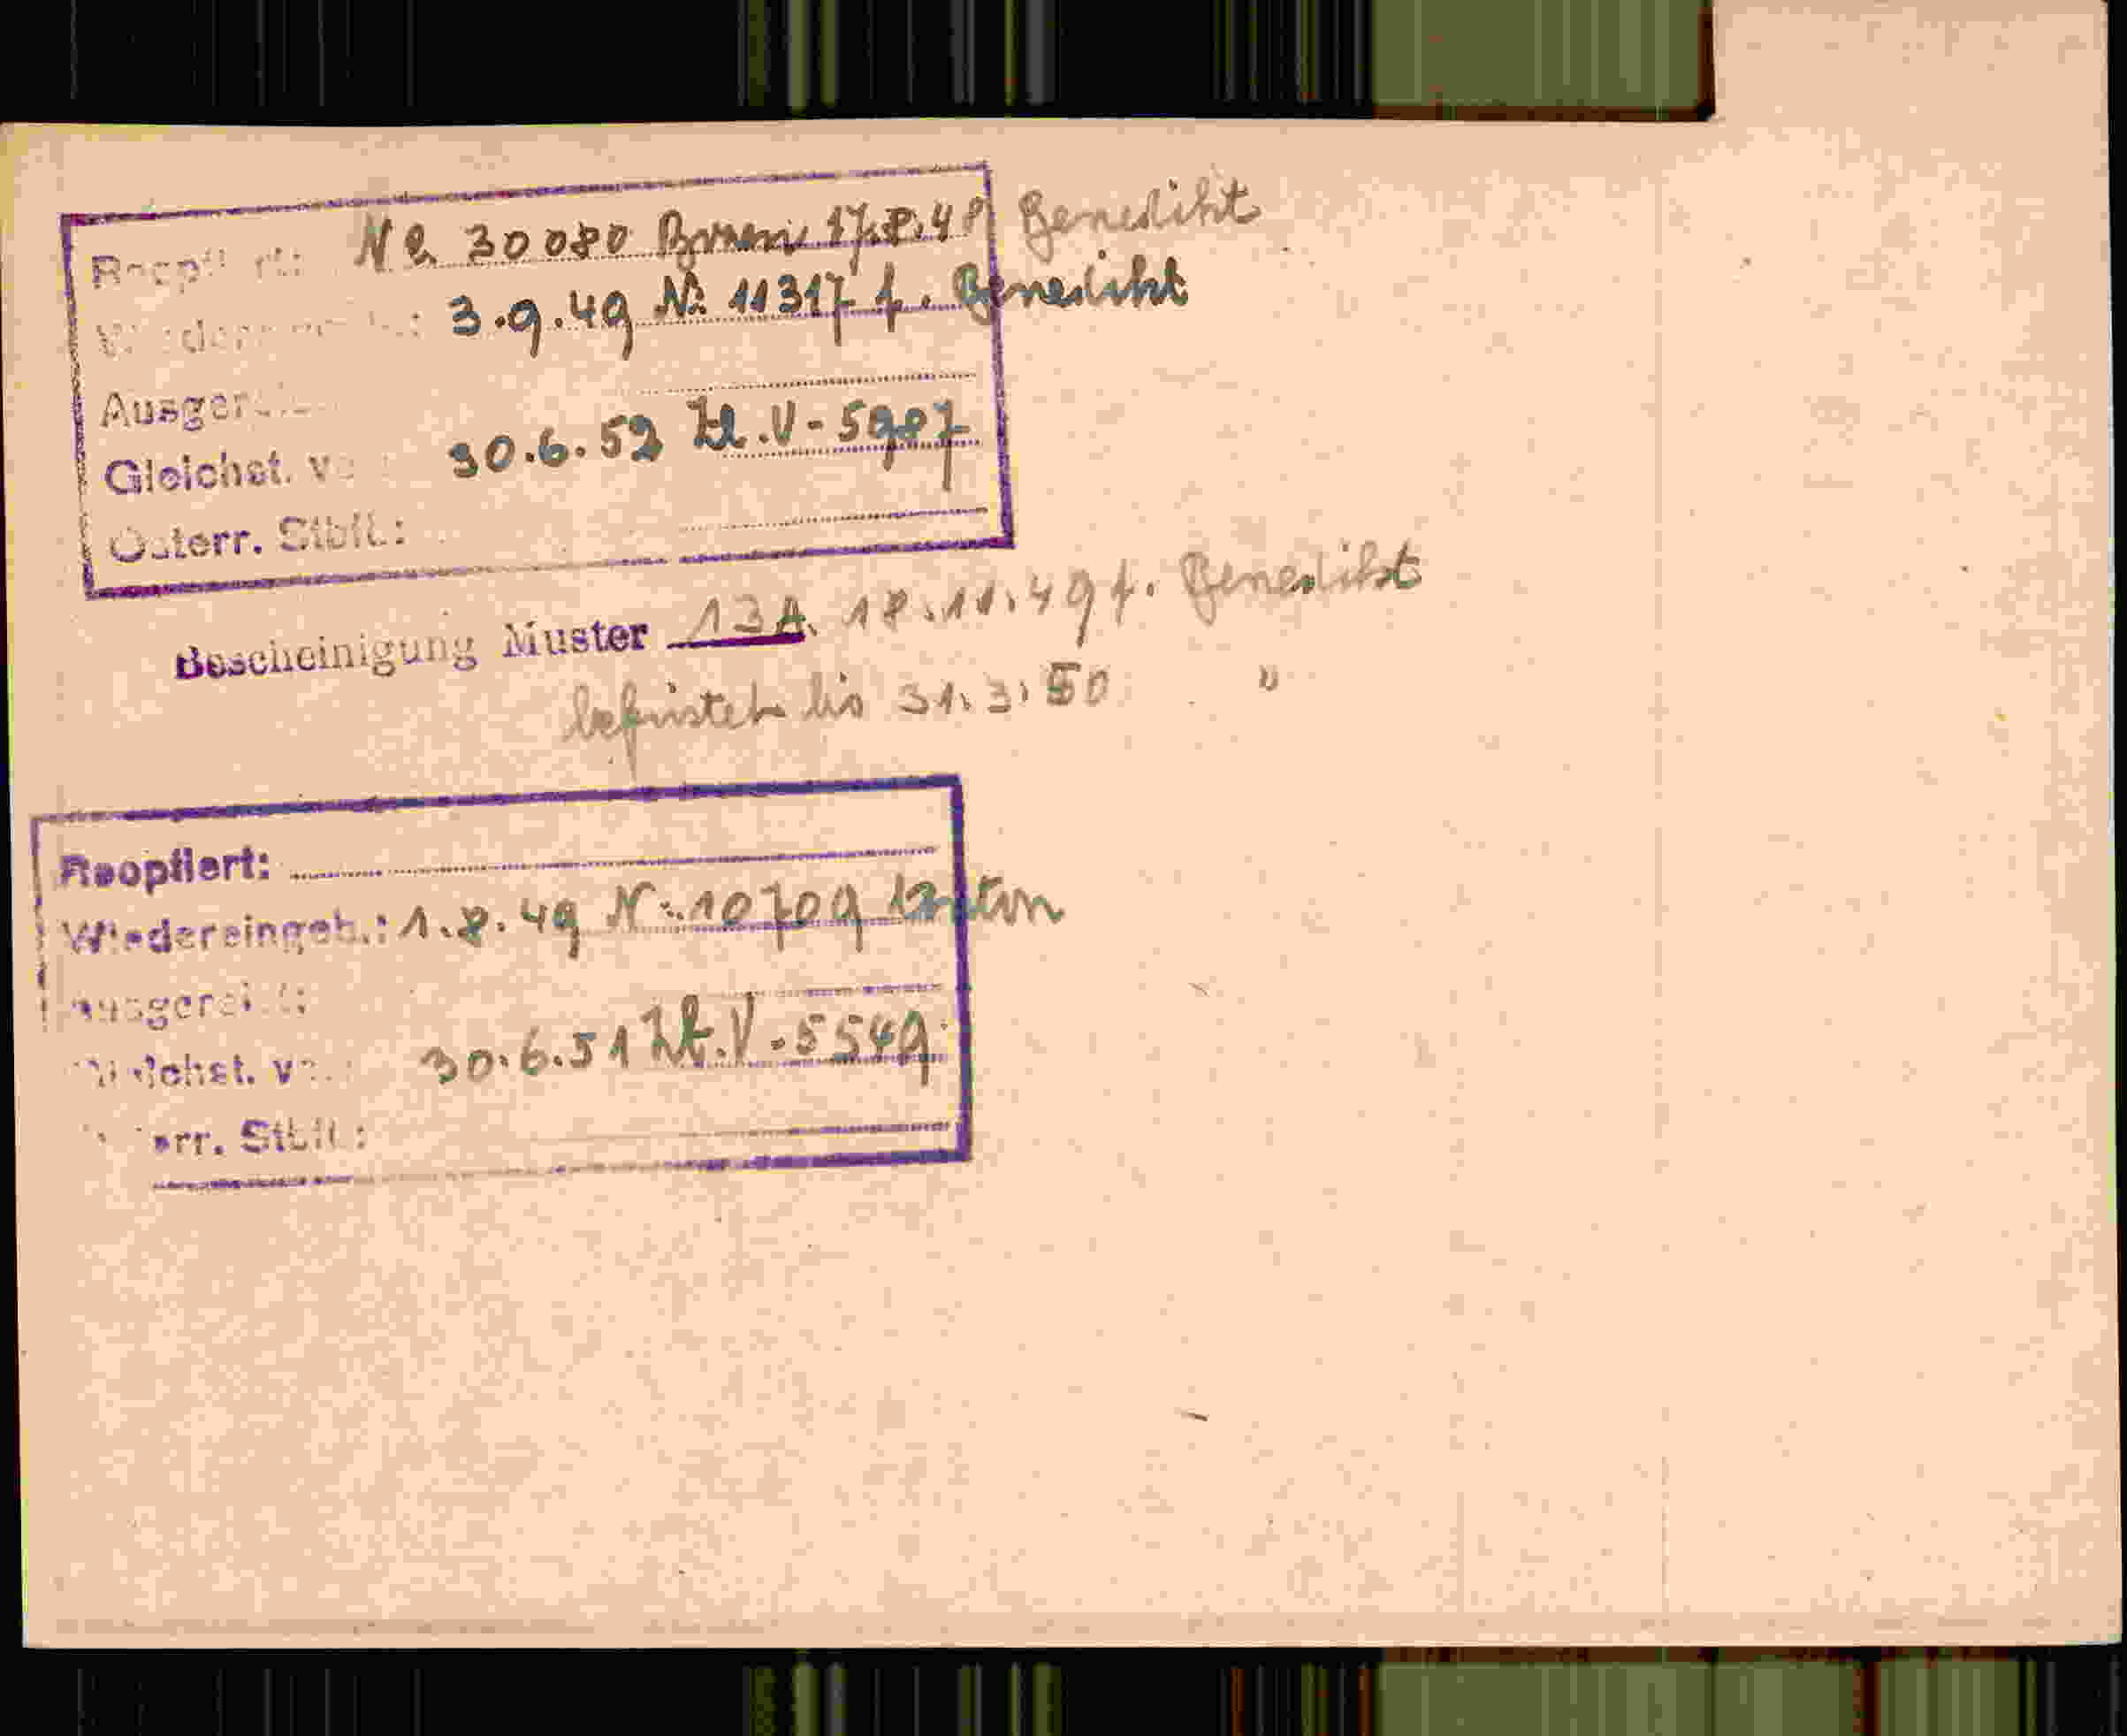 Reoptiert: No. 30080 Bozen 17.8.48 Benedikt
3.9.49 No 11317 f. Benedikt
Ausger
Gleichst. v 30.6.52 Zl.V-5987
Österr. Stbft.:
Bescheinigung Muster 13A. 18.11.49 f. Benedikt
befristet bis 31.3.50 "
Reoptiert:
Wiedereingeb.: 1.8.49 N: 10709 Anton
ausgereist:
Gleichst. v 30.6.51 Zl.V.-5549
Österr. Stbft.: